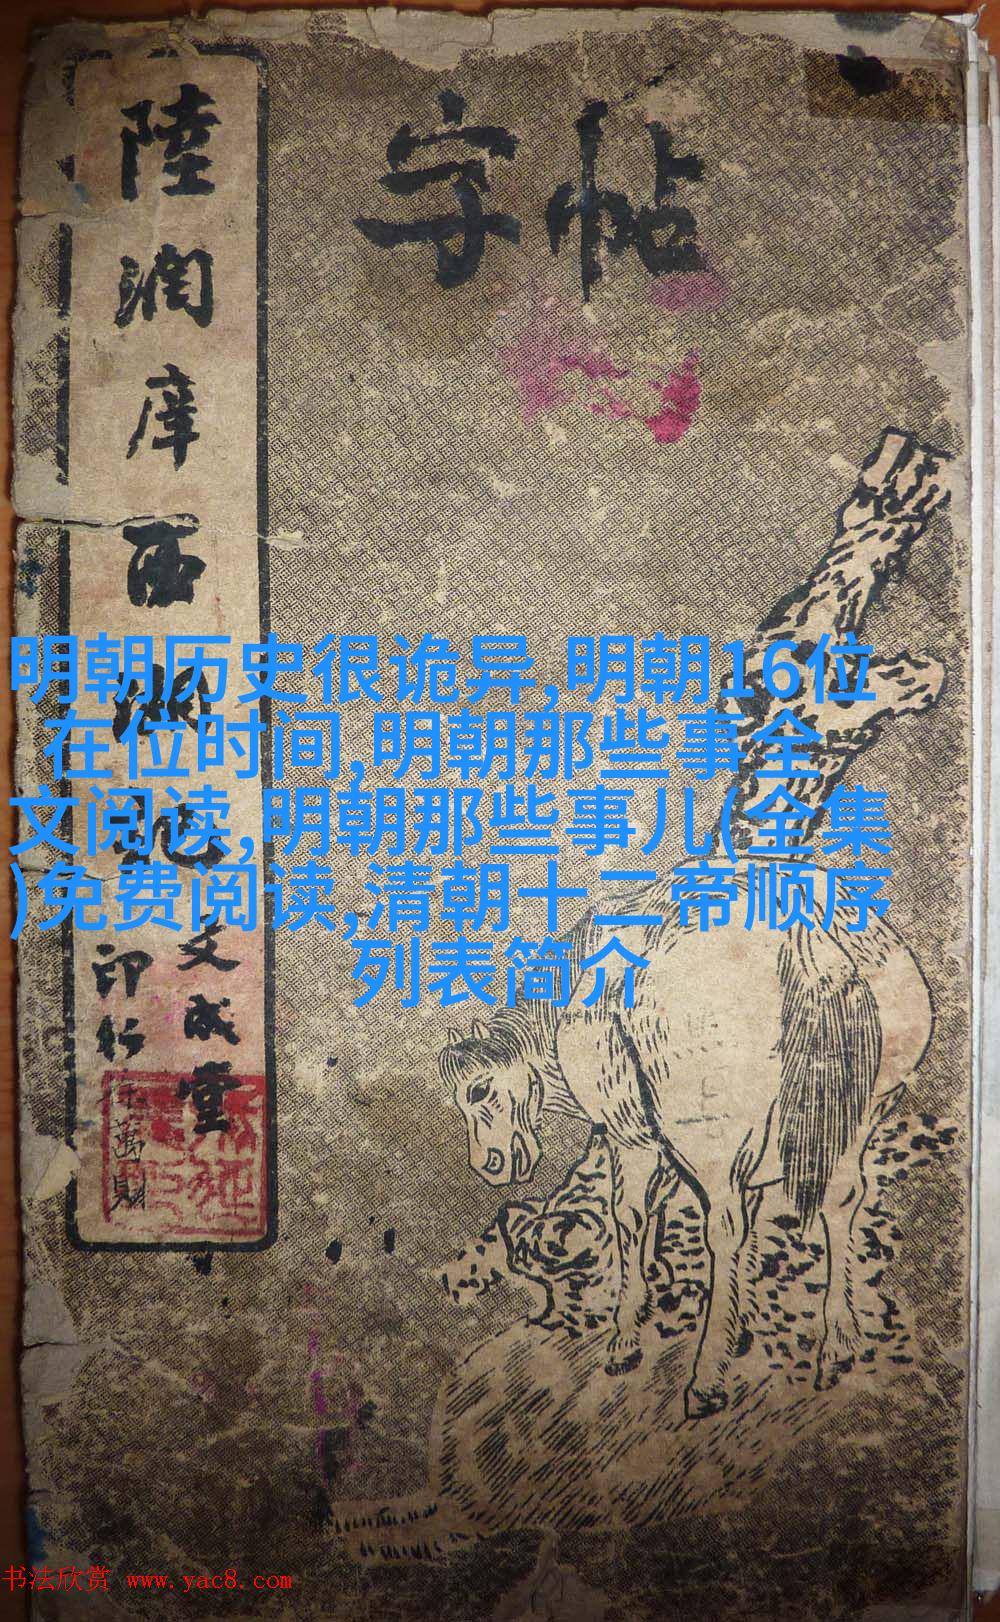 字帖
陸润庠西湖記
文成堂
印行
徐萬財
明朝历史很诡异,明朝16位
在位时间,明朝那些事全
文阅读,明朝那些事儿(全集
)免费阅读,清朝十二帝顺序
列表简介
书法欣赏 www.yac8.com